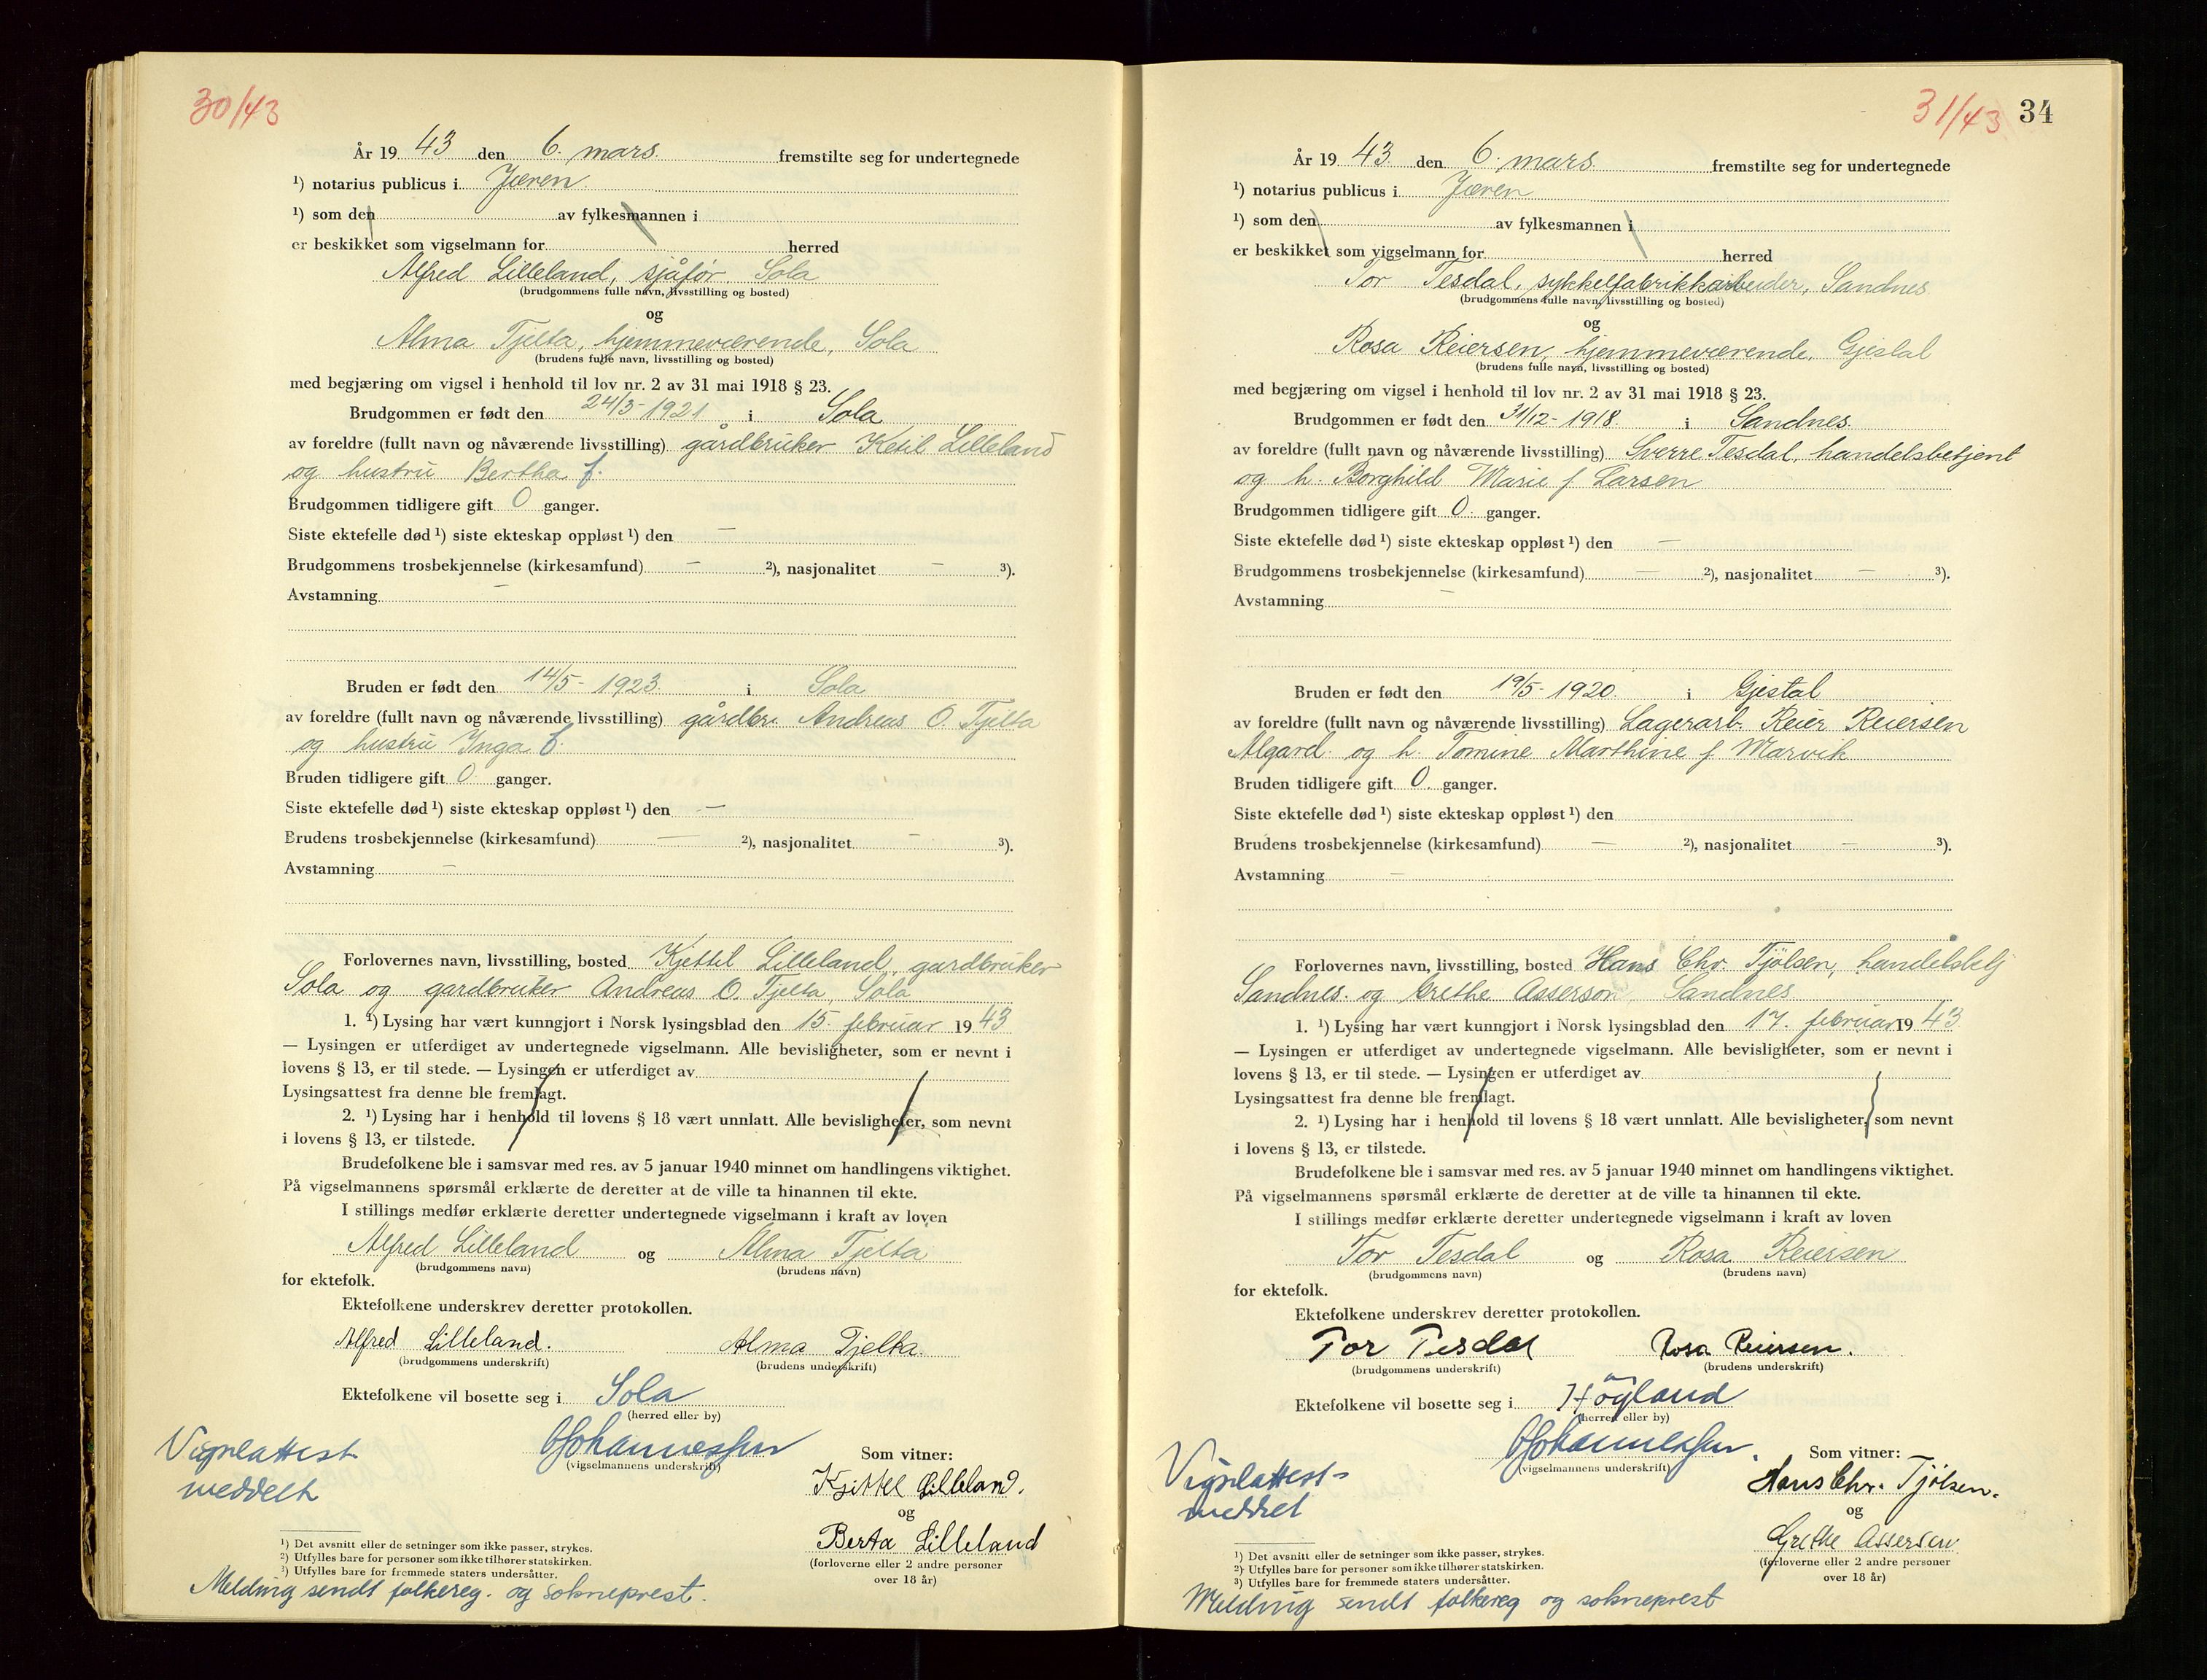 30/43
År 19 43 den 6. mars. fremstilte seg for undertegnede
¹) notarius publicus i Jæren.
¹) som den av fylkesmannen i
er beskikket som vigselmann for herred
Alfred Lilleland, sjåfør, Sola
(brudgommens fulle navn, livsstilling og bosted)
og
Alma Tjelta, hjemmeværende, Sola
(brudens fulle navn, livsstilling og bosted)
med begjæring om vigsel i henhold til lov nr. 2 av 31 mai 1918 § 23.
Brudgommen er født den 24/3-1921 i Sola
av foreldre (fullt navn og nåværende livsstilling) gårdbruker Ketil Lilleland
og hustru Bertha f.
Brudgommen tidligere gift 0 ganger.
Siste ektefelle død ¹) siste ekteskap oppløst ¹) den —
Brudgommens trosbekjennelse (kirkesamfund) — ²), nasjonalitet — ³).
Avstamning —
Bruden er født den 14/5- 1923. i Sola
av foreldre (fullt navn og nåværende livsstilling) gårdbr. Andreas O. Tjelta
og hustru Inga f.
Bruden tidligere gift 0 ganger.
Siste ektefelle død ¹) siste ekteskap oppløst ¹) den —
Brudens trosbekjennelse (kirkesamfund) — ²), nasjonalitet — ³).
Avstamning —
Forlovernes navn, livsstilling, bosted Kjettil Lilleland, gardbruker
Sola og gardbruker Andreas O. Tjelta, Sola
1. ¹) Lysing har vært kunngjort i Norsk lysingsblad den 15. februar 19 43
— Lysingen er utferdiget av undertegnede vigselmann. Alle bevisligheter, som er nevnt i
lovens § 13, er til stede. — Lysingen er utferdiget av
Lysingsattest fra denne ble fremlagt.
2. ¹) Lysing har i henhold til lovens § 18 vært unnlatt. Alle bevisligheter, som nevnt
i lovens § 13, er tilstede.
Brudefolkene ble i samsvar med res. av 5 januar 1940 minnet om handlingens viktighet.
På vigselmannens spørsmål erklærte de deretter at de ville ta hinannen til ekte.
I stillings medfør erklærte deretter undertegnede vigselmann i kraft av loven
Alfred Lilleland og Alma Tjelta
(brudgommens navn) (brudens navn)
for ektefolk.
Ektefolkene underskrev deretter protokollen.
Alfred Lilleland. Alma Tjelta.
(brudgommens underskrift) (brudens underskrift)
Ektefolkene vil bosette seg i Sola
(herred eller by)
Vigselattest
meddelt
Johannessen
(vigselmannens underskrift)
Som vitner:
Kjittel Lilleland.
og
Berta Lilleland
(forloverne eller 2 andre personer
over 18 år)
¹) Det avsnitt eller de setninger som ikke passer, strykes.
²) Utfylles bare for personer som ikke tilhører statskirken.
³) Utfylles bare for fremmede staters undersåtter.
Melding sendt folkereg. og sokneprest.
31/43 34
År 19 43. den 6. mars. fremstilte seg for undertegnede
¹) notarius publicus i Jæren
¹) som den av fylkesmannen i
er beskikket som vigselmann for herred
Tor Tesdal, sykkelfabrikkarbeider, Sandnes.
(brudgommens fulle navn, livsstilling og bosted)
og
Rosa Reiersen, hjemmeværende, Gjestal
(brudens fulle navn, livsstilling og bosted)
med begjæring om vigsel i henhold til lov nr. 2 av 31 mai 1918 § 23.
Brudgommen er født den 31/12-1918. i Sandnes.
av foreldre (fullt navn og nåværende livsstilling) Sverre Tesdal, handelsbetjent
og h. Borghild Marie f. Larsen
Brudgommen tidligere gift 0. ganger.
Siste ektefelle død ¹) siste ekteskap oppløst ¹) den —
Brudgommens trosbekjennelse (kirkesamfund) — ²), nasjonalitet — ³).
Avstamning —
Bruden er født den 19/5-1920. i Gjestal
av foreldre (fullt navn og nåværende livsstilling) Lagerarb. Reier Reiersen
Algard. og h. Tomine Marthine f. Marvik
Bruden tidligere gift 0. ganger.
Siste ektefelle død ¹) siste ekteskap oppløst ¹) den
Brudens trosbekjennelse (kirkesamfund) — ²), nasjonalitet — ³).
Avstamning —
Forlovernes navn, livsstilling, bosted Hans Chr. Tjölsen, handelsbetj
Sandnes. og Grethe Asserson, Sandnes
1. ¹) Lysing har vært kunngjort i Norsk lysingsblad den 17. februar 19 43
— Lysingen er utferdiget av undertegnede vigselmann. Alle bevisligheter, som er nevnt i
lovens § 13, er til stede. — Lysingen er utferdiget av
Lysingsattest fra denne ble fremlagt.
2. ¹) Lysing har i henhold til lovens § 18 vært unnlatt. Alle bevisligheter, som nevnt
i lovens § 13, er tilstede.
Brudefolkene ble i samsvar med res. av 5 januar 1940 minnet om handlingens viktighet.
På vigselmannens spørsmål erklærte de deretter at de ville ta hinannen til ekte.
I stillings medfør erklærte deretter undertegnede vigselmann i kraft av loven
Tor Tesdal og Rosa Reiersen
(brudgommens navn) (brudens navn)
for ektefolk.
Ektefolkene underskrev deretter protokollen.
Tor Tesdal Rosa Reiersen.
(brudgommens underskrift) (brudens underskrift)
Ektefolkene vil bosette seg i Höyland
(herred eller by)
Vigselattest
meddelt
Johannessen.
(vigselmannens underskrift)
Som vitner:
Hans Chr. Tjölsen.
og
Grethe Assersen
(forloverne eller 2 andre personer
over 18 år)
¹) Det avsnitt eller de setninger som ikke passer, strykes.
²) Utfylles bare for personer som ikke tilhører statskirken.
³) Utfylles bare for fremmede staters undersåtter.
Melding sendt folkereg og sokneprest